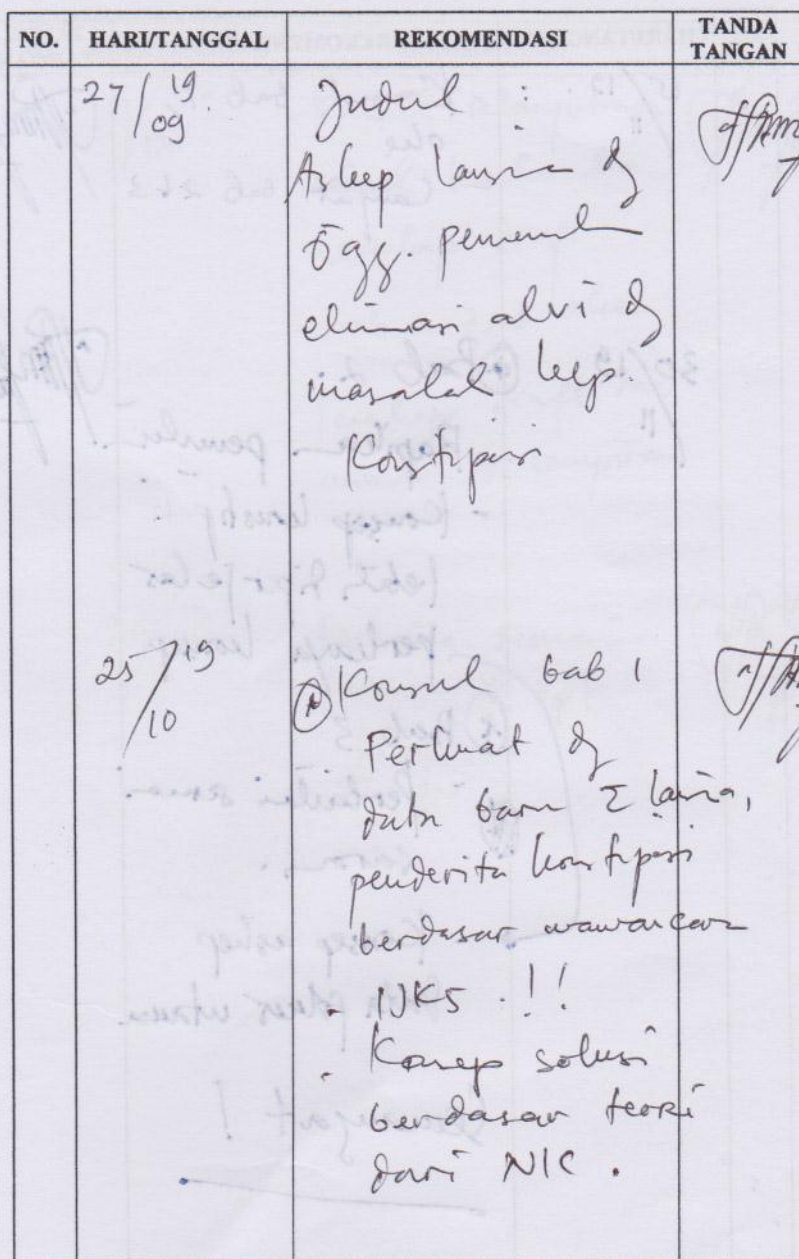 NO. HARI/TANGGAL REKOMENDASI TANDA TANGAN
27/09 19
Judul :
Askep lansia dg
gg. pemenuh
eliminasi alvi dg
masalah kep.
Konstipasi
25/10 19
Konsul bab 1
Perkuat dg
data baru Σ lansia,
penderita konstipasi
berdasar wawancara
- IJKS . !!
- Konsep solusi
berdasar teori
dari NIC .